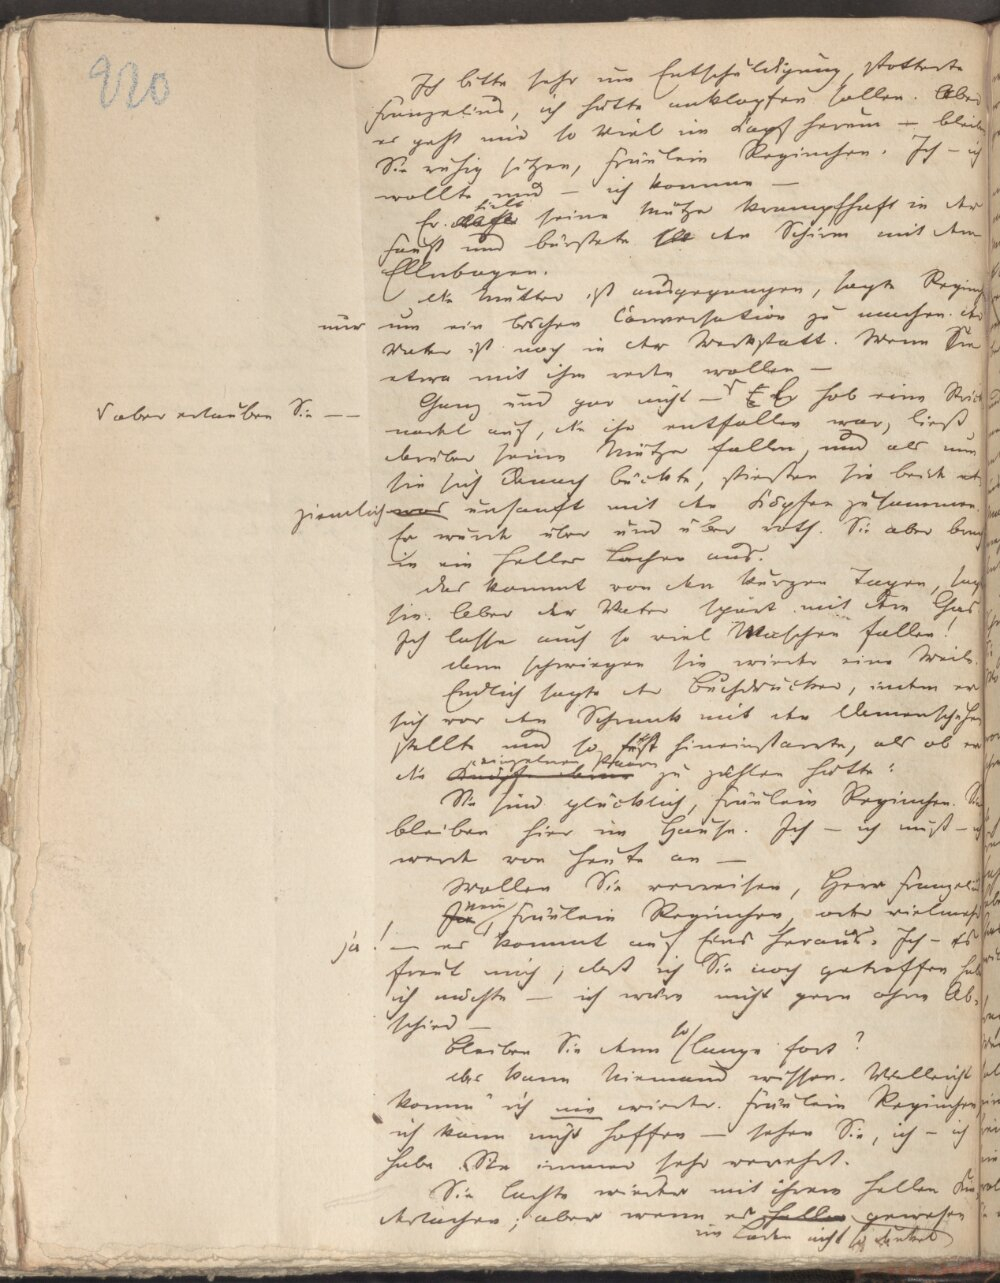 220
Ich bitte sehr um Entschuldigung, stotterte
Franzelius, ich hätte anklopfen sollen. Aber
es geht mir so Viel im Kopf herum – bleiben
Sie ruhig sitzen, Fräulein Reginchen. Ich – ich
wollte nur – ich komme –
Er hielt seine Mütze krampfhaft in der
Faust und bürstete den Schirm mit dem
Ellnbogen.
Die Mutter ist ausgegangen, sagte Reginchen
nur um ein bischen Conversation zu machen. Der
Vater ist noch in der Werkstatt. Wenn Sie
etwa mit ihm reden wollen –
Ganz und gar nicht – Er hob eine Strick
aber erlauben Sie – –
nadel auf, die ihr entfallen war, ließ
darüber seine Mütze fallen, und als nun
sie sich danach bückte, stießen sie beide
ziemlich unsanft mit den Köpfen zusammen.
Er wurde über und über roth. Sie aber brach
in ein helles Lachen aus.
Das kommt von den kurzen Tagen, sagte
sie. Aber der Vater spart mit dem Gas
Ich lasse auch so viel Maschen fallen!
Dann schwiegen sie wieder eine Weile.
Endlich sagte der Buchdrucker, indem er
sich vor den Schrank mit den Damenschuhen
stellte und so fest hineinstarrte, als ob er
die einzelnen Paare zu zählen hätte:
Sie sind glücklich, Fräulein Reginchen. Sie
bleiben hier im Hause. Ich – ich muß – ich
werde von heute an –
Wollen Sie verreisen, Herr Franzelius
Nein, Fräulein Reginchen, oder vielmehr
ja! – es kommt auf Eins heraus. Ich – es
freut mich, daß ich Sie noch getroffen habe
ich möchte – ich wäre nicht gern ohne Ab-
schied –
Bleiben Sie denn so lange fort?
Das kann Niemand wissen. Vielleicht
komm' ich nie wieder. Fräulein Reginchen,
ich kann nicht hoffen – sehen Sie, ich – ich
habe Sie immer sehr verehrt.
Sie lachte wieder mit ihrem hellen Kin
derlachen; aber wenn es gewesen
im Laden nicht so dunkel